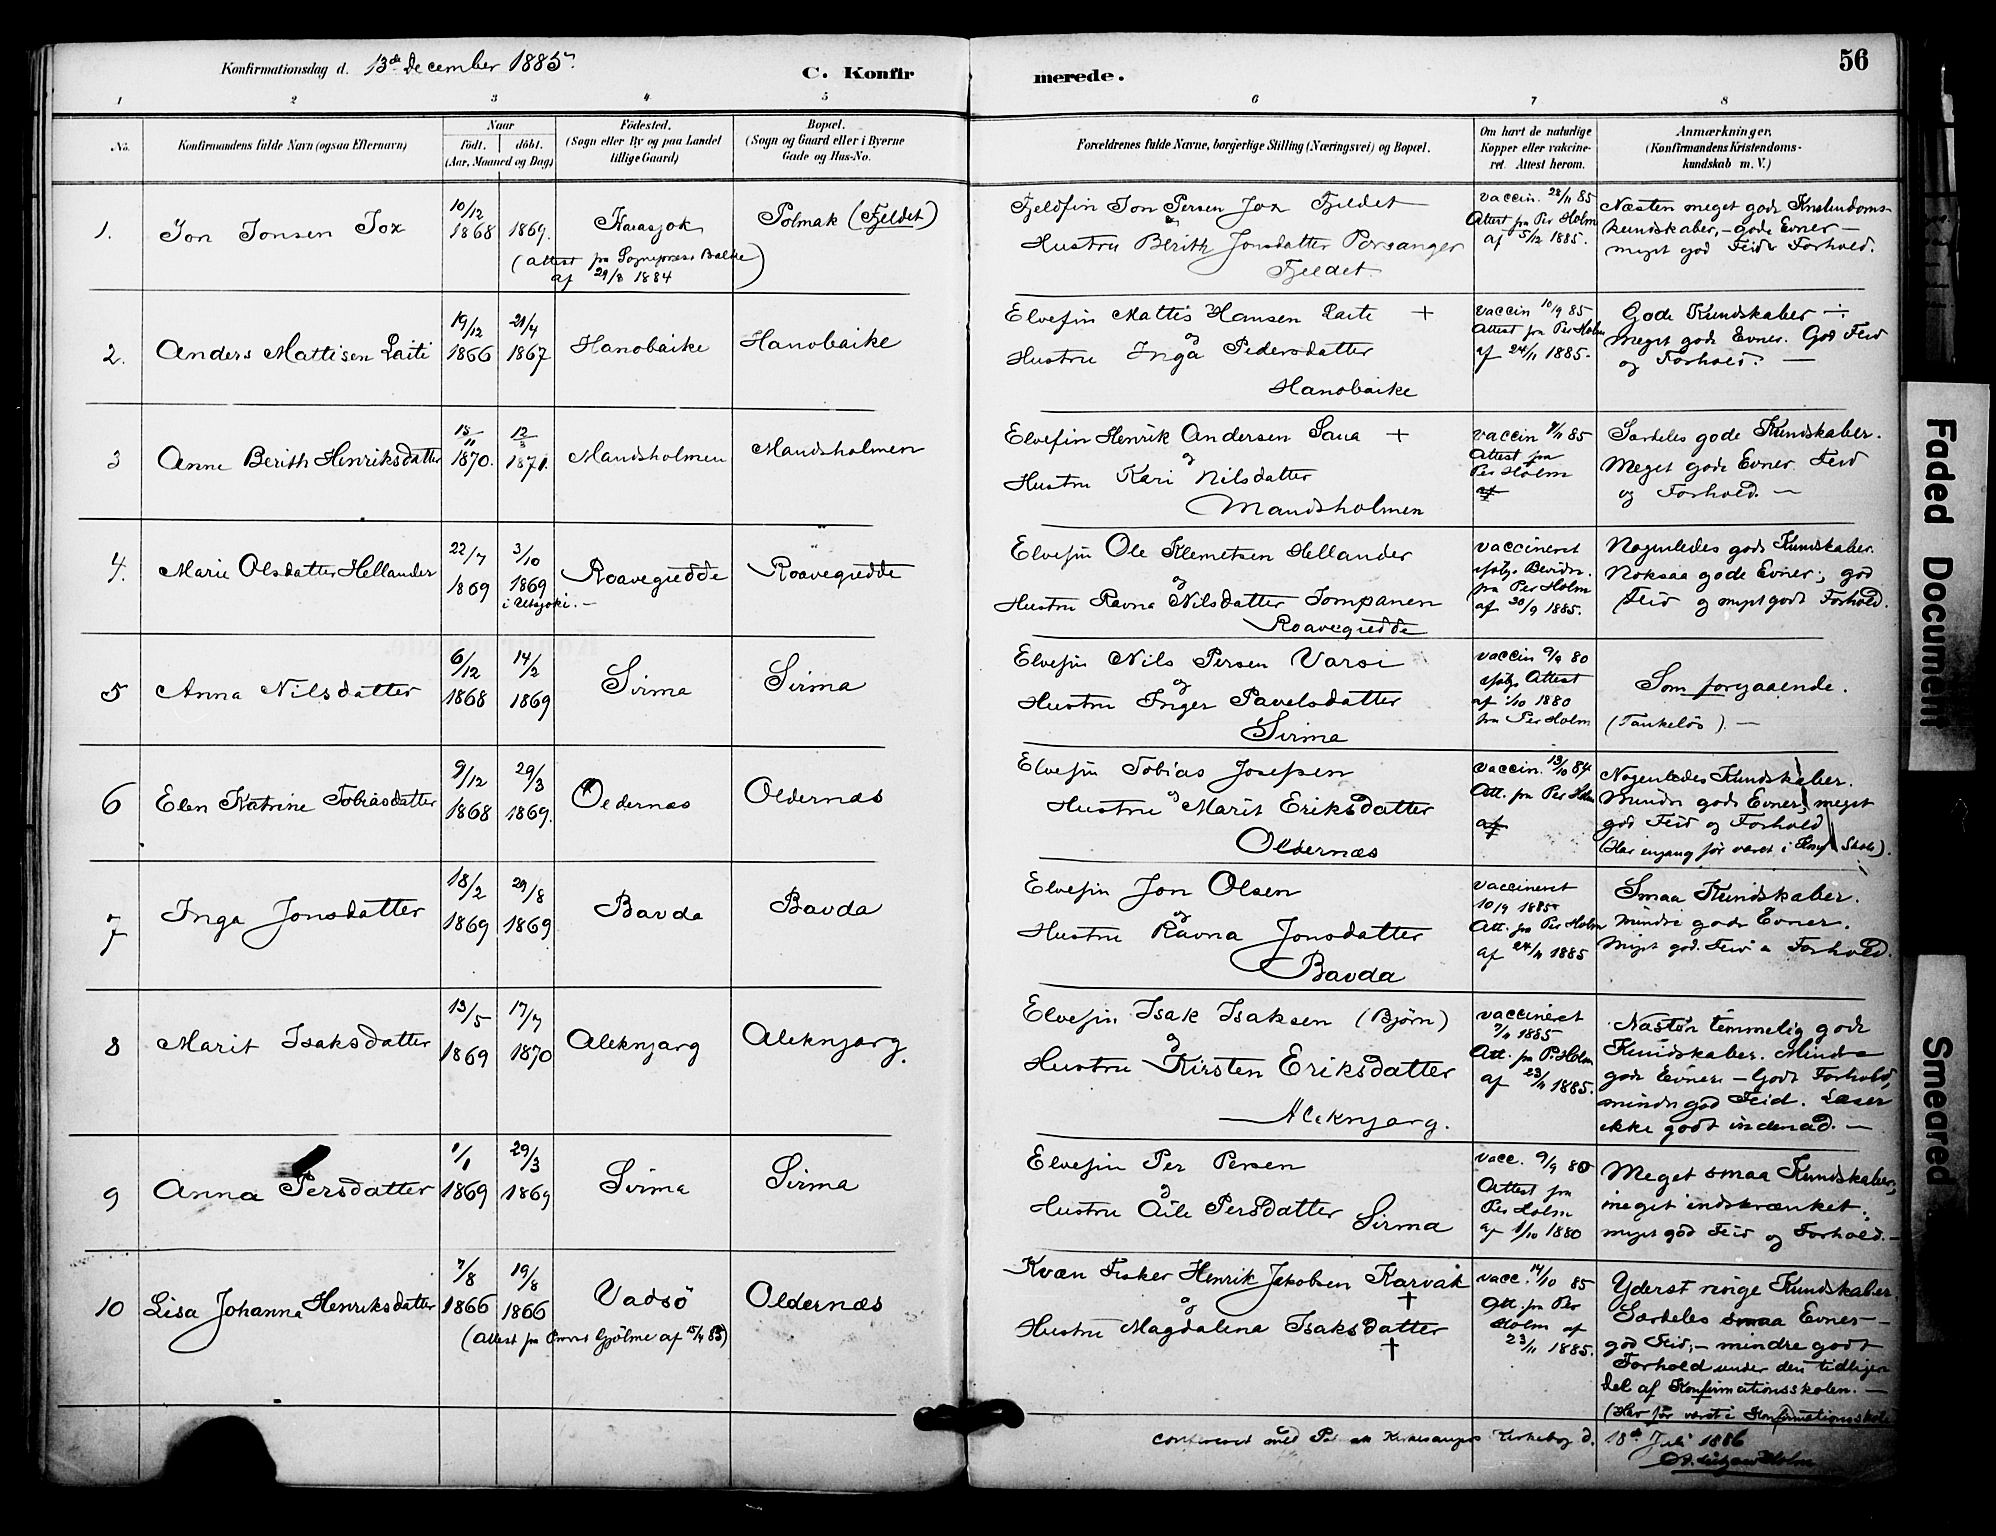 Konfirmationsdag d. 13de December 1885.
C. Konfirmerede.
56
1 2 3 4 5 6 7 8
No.
Konfirmandens fulde Navn (ogsaa Efternavn)
Naar
födt. döbt.
(Aar, Maaned og Dag)
Födested.
(Sogn eller By og paa Landet
tillige Gaard)
Bopæl.
(Sogn og Gaard eller i Byerne
Gade og Hus-No.
Forældrenes fulde Navne, borgerlige Stilling (Næringsvei) og Bopæl.
Om havt de naturlige
Kopper eller vakcine-
ret. Attest herom.
Anmærkninger.
(Konfirmandens Kristendoms-
kundskab m. V.)
1. Jon Jonsen Jox
10/12 1868
1869.
Karasjok
(Attest fra Sognepræst Balke
af 29/8 1884)
Polmak (Fjeldet)
Fjeldfin Jon Persen Jox Fjeldet
&
Hustru Berith Jonsdatter Porsanger
Fjeldet
vaccin. 28/11 85
Attest fra Per Holm
af 5/12 1885.
Næsten meget gode Kristendoms-
kundskaber, - gode Evner -
meget god Flid & Forhold.
2. Anders Mattisen Laiti
19/12 1866
21/4 1867
Hanobaike
Hanobaike
Elvefin Mattis Hansen Laiti +
og
Hustru Inga Pedersdatter
Hanobaike
vaccin 10/9 85
Attest fra Per Holm
af 24/11 1885.
Gode Kundskaber -
Meget gode Evner. God Flid
og Forhold. -
3 Anne Berith Henriksdatter
15/11 1870.
12/3 1871.
Mandsholmen
Mandsholmen
Elvefin Henrik Andersen Saua +
og
Hustru Kari Nilsdatter
Mandsholmen
vaccin 9/11 85
Attest fra
Per Holm
af
Særdeles gode Kundskaber.
Meget gode Evner. Flid
og Forhold. -
4. Marie Olsdatter Hellander
22/7 1869
3/10 1869
i Utsjoki. -
Roavegiedde
Roavegiedde
Elvefin Ole Klemetsen Hellander
og
Hustru Ravna Nilsdatter Jompanen
Roavegiedde
vaccineret
ifølge Bevidn.
fra Per Holm
af 30/9 1885.
Nogenledes gode Kundskaber.
Noksaa gode Evner; god
Flid og meget godt Forhold.
5 Anna Nilsdatter
6/12 1868
14/2 1869
Sirma
Sirma
Elvefin Nils Persen Varsi
og
Hustru Inger Pavelsdatter
Sirma
vaccin 9/9 80
ifølge Attest
af 1/10 1880
fra Per Holm
Som forgaaende.
(Tankeløs). -
6 Elen Katrine Tobiasdatter
9/12 1868
29/3 1869.
Oldernæs
Oldernæs
Elvefin Tobias Josefsen
og
Hustru Marit Eriksdatter
Oldernæs
vaccin. 13/10 84
Att. fra Per Holm
af
Nogenledes Kundskaber.
Mindre gode Evner, meget
god Flid og Forhold
(Har engang før været i Konf. Skole).
7 Inga Jonsdatter
18/2 1869
29/8 1869
Bavda
Bavda
Elvefin Jon Olsen
og
Hustru Ravna Jonsdatter
Bavda
vaccineret
10/9 1885
Att. fra Per Holm
af 24/11 1885
Smaa Kundskaber.
mindre gode Evner.
Meget god Flid & Forhold.
8 Marit Isaksdatter
13/5 1869
17/7 1870
Aleknjarg
Aleknjarg.
Elvefin Isak Isaksen (Bjørn)
og
Hustru Kirsten Eriksdatter
Aleknjarg.
vaccineret
9/11 1885
Att. fra P. Holm
af 23/11 1885.
Næsten temmelig gode
Kundskaber. Mindre
gode Evner. - Godt Forhold,
mindre god Flid. Læser
ikke godt indenad. -
9 Anna Persdatter
1/1 1869
29/3 1869
Sirma
Sirma
Elvefin Per Persen
og
Hustru Aile Persdatter Sirma
vacc. 9/9 80
Attest fra
Per Holm
af 1/10 1880
Meget smaa Kundskaber,
meget indskrænket;
meget god Flid og Forhold. -
10 Lisa Johanna Henriksdatter
7/8 1866
19/8 1866
Vadsö
(Attest fra Provst Gjølme af 15/11 85)
Oldernæs
Kvæn Fisker Henrik Jakobsen Karvak
†
og
Hustru Magdalena Isaksdatter
†
vacc. 14/10 85
Att. fra Per
Holm af
23/11 1885.
Yderst ringe Kundskaber
Særdeles smaa Evner -
god Flid; - mindre godt
Forhold under den tidligere
Del af Konfirmationsskolen. -
(Har før været i Konfirmationsskole
Confereret med Kirkesangers Kirkebog d. 18de Juli 1886
Holm
Faded Document
Smeared